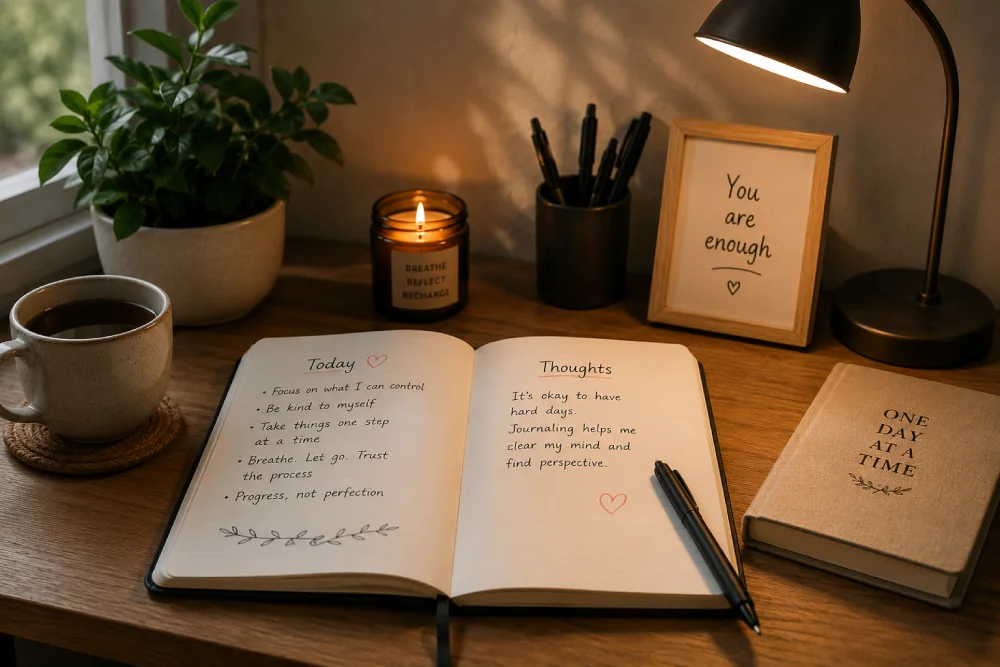 BREATHE
REFLECT
RECHARGE
You
are
enough
Today
• Focus on what I can control
• Be kind to myself
• Take things one step
at a time
• Breathe. Let go. Trust
the process
• Progress, not perfection
Thoughts
It's okay to have
hard days.
Journaling helps me
clear my mind and
find perspective.
ONE
DAY
AT A
TIME